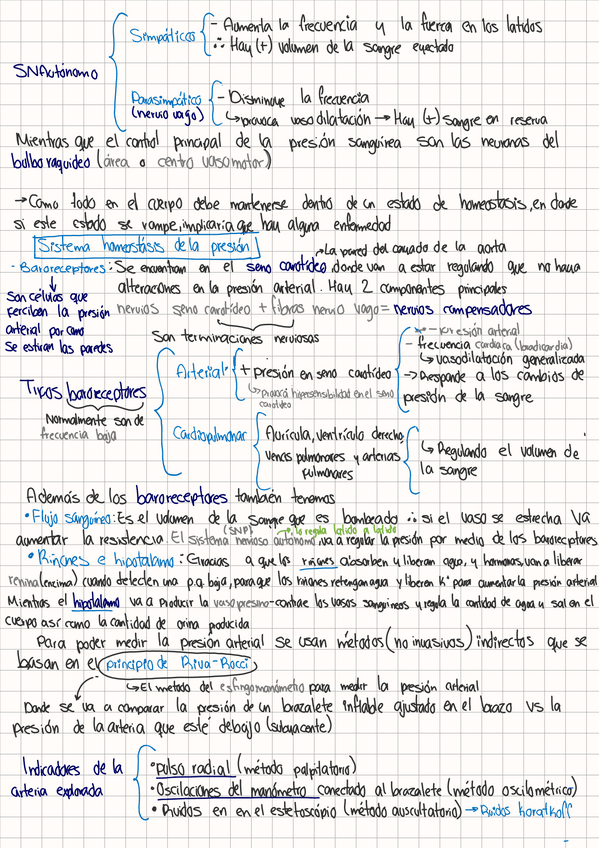 SNAutónomo
Simpáticos
- Aumenta la frecuencia y la fuerza en los latidos
∴ Hay (+) volumen de la sangre eyectado
Parasimpático
(nervio vago)
- Disminuye la frecuencia
↳ provoca vasodilatación → Hay (+) sangre en reserva
Mientras que el control principal de la presión sanguínea son las neuronas del
bulbo raquídeo (área o centro vasomotor)
→ Como todo en el cuerpo debe mantenerse dentro de un estado de homeostásis, en donde
si este estado se rompe, implicaría que hay alguna enfermedad
Sistema homeostásis de la presión
La pared del cayado de la aorta
- Baroreceptores: Se encuentran en el seno carotídeo, donde van a estar regulando que no haya
alteraciones en la presión arterial. Hay 2 componentes principales
Son células que
perciben la presión
arterial por como
se estiran las paredes
nervios seno carotídeo + fibras nervio vago = nervios compensadores
Son terminaciones nerviosas
Tipos baroreceptores
Normalmente son de
frecuencia baja
Arterial:
+ presión en seno carotídeo
↳ Provoca hipersensibilidad en el seno
carotídeo
- presión arterial
- frecuencia cardiaca (bradicardia)
↳ vasodilatación generalizada
→ Responde a los cambios de
presión de la sangre
Cardiopulmonar
Aurícula, ventrículo derecho,
venas pulmonares y arterias
pulmonares
↳ Regulando el volumen de
la sangre
Además de los baroreceptores también tenemos
• Flujo sanguíneo: Es el volumen de la sangre que es bombeado ∴ si el vaso se estrecha va
(SNP) lo regula latido a latido
aumentar la resistencia. El sistema nervioso autónomo va a regular la presión por medio de los baroreceptores
• Riñones e hipotálamo: Gracias a que los riñones absorben y liberan agua, y hormonas, van a liberar
renina (encima) cuando detecten una p.a. baja, para que los riñones retengan agua y liberen K⁺ para aumentar la presión arterial
Mientras el hipotálamo va a producir la vasopresina - contrae los vasos sanguíneos y regula la cantidad de agua y sal en el
cuerpo así como la cantidad de orina producida
Para poder medir la presión arterial se usan métodos (no invasivos) indirectos que se
basan en el principio de Riva-Rocci
↳ El metodo del esfingomanómetro para medir la presión arterial
Donde se va a comparar la presión de un brazalete inflable ajustado en el brazo vs la
presión de la arteria que esté debajo (subyacente)
Indicadores de la
arteria explorada
• pulso radial (método palpitatorio)
• Oscilaciones del manómetro conectado al brazalete (método oscilométrico)
• Ruidos en en el estetoscópio (método auscultatorio) → Ruidos korotkoff